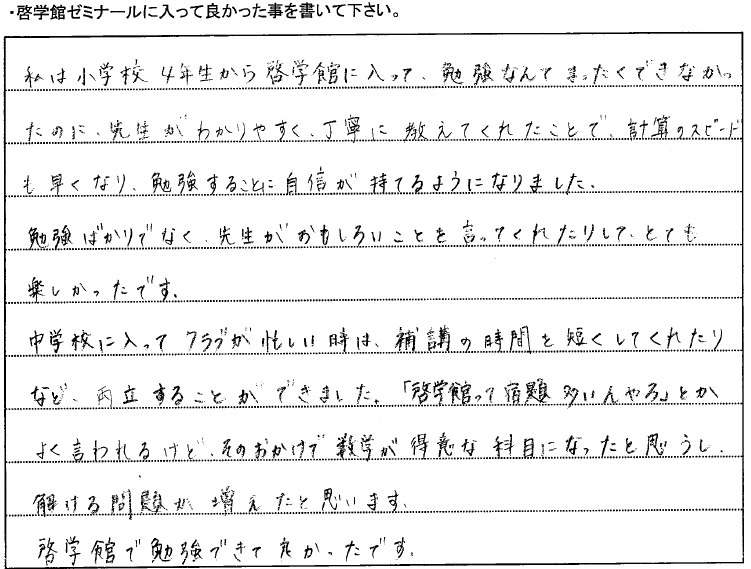 ・啓学館ゼミナールに入って良かった事を書いて下さい。
私は小学校4年生から啓学館に入って、勉強なんてまったくできなかっ
たのに、先生がわかりやすく、丁寧に教えてくれたことで、計算のスピード
も早くなり、勉強することに自信が持てるようになりました。
勉強ばかりでなく、先生がおもしろいことを言ってくれたりして、とても
楽しかったです。
中学校に入ってクラブが忙しい時は、補講の時間を短くしてくれたり
など、両立することができました。「啓学館って宿題多いんやろ」とか
よく言われるけど、そのおかげで数学が得意な科目になったと思うし、
解ける問題が増えたと思います。
啓学館で勉強できて良かったです。